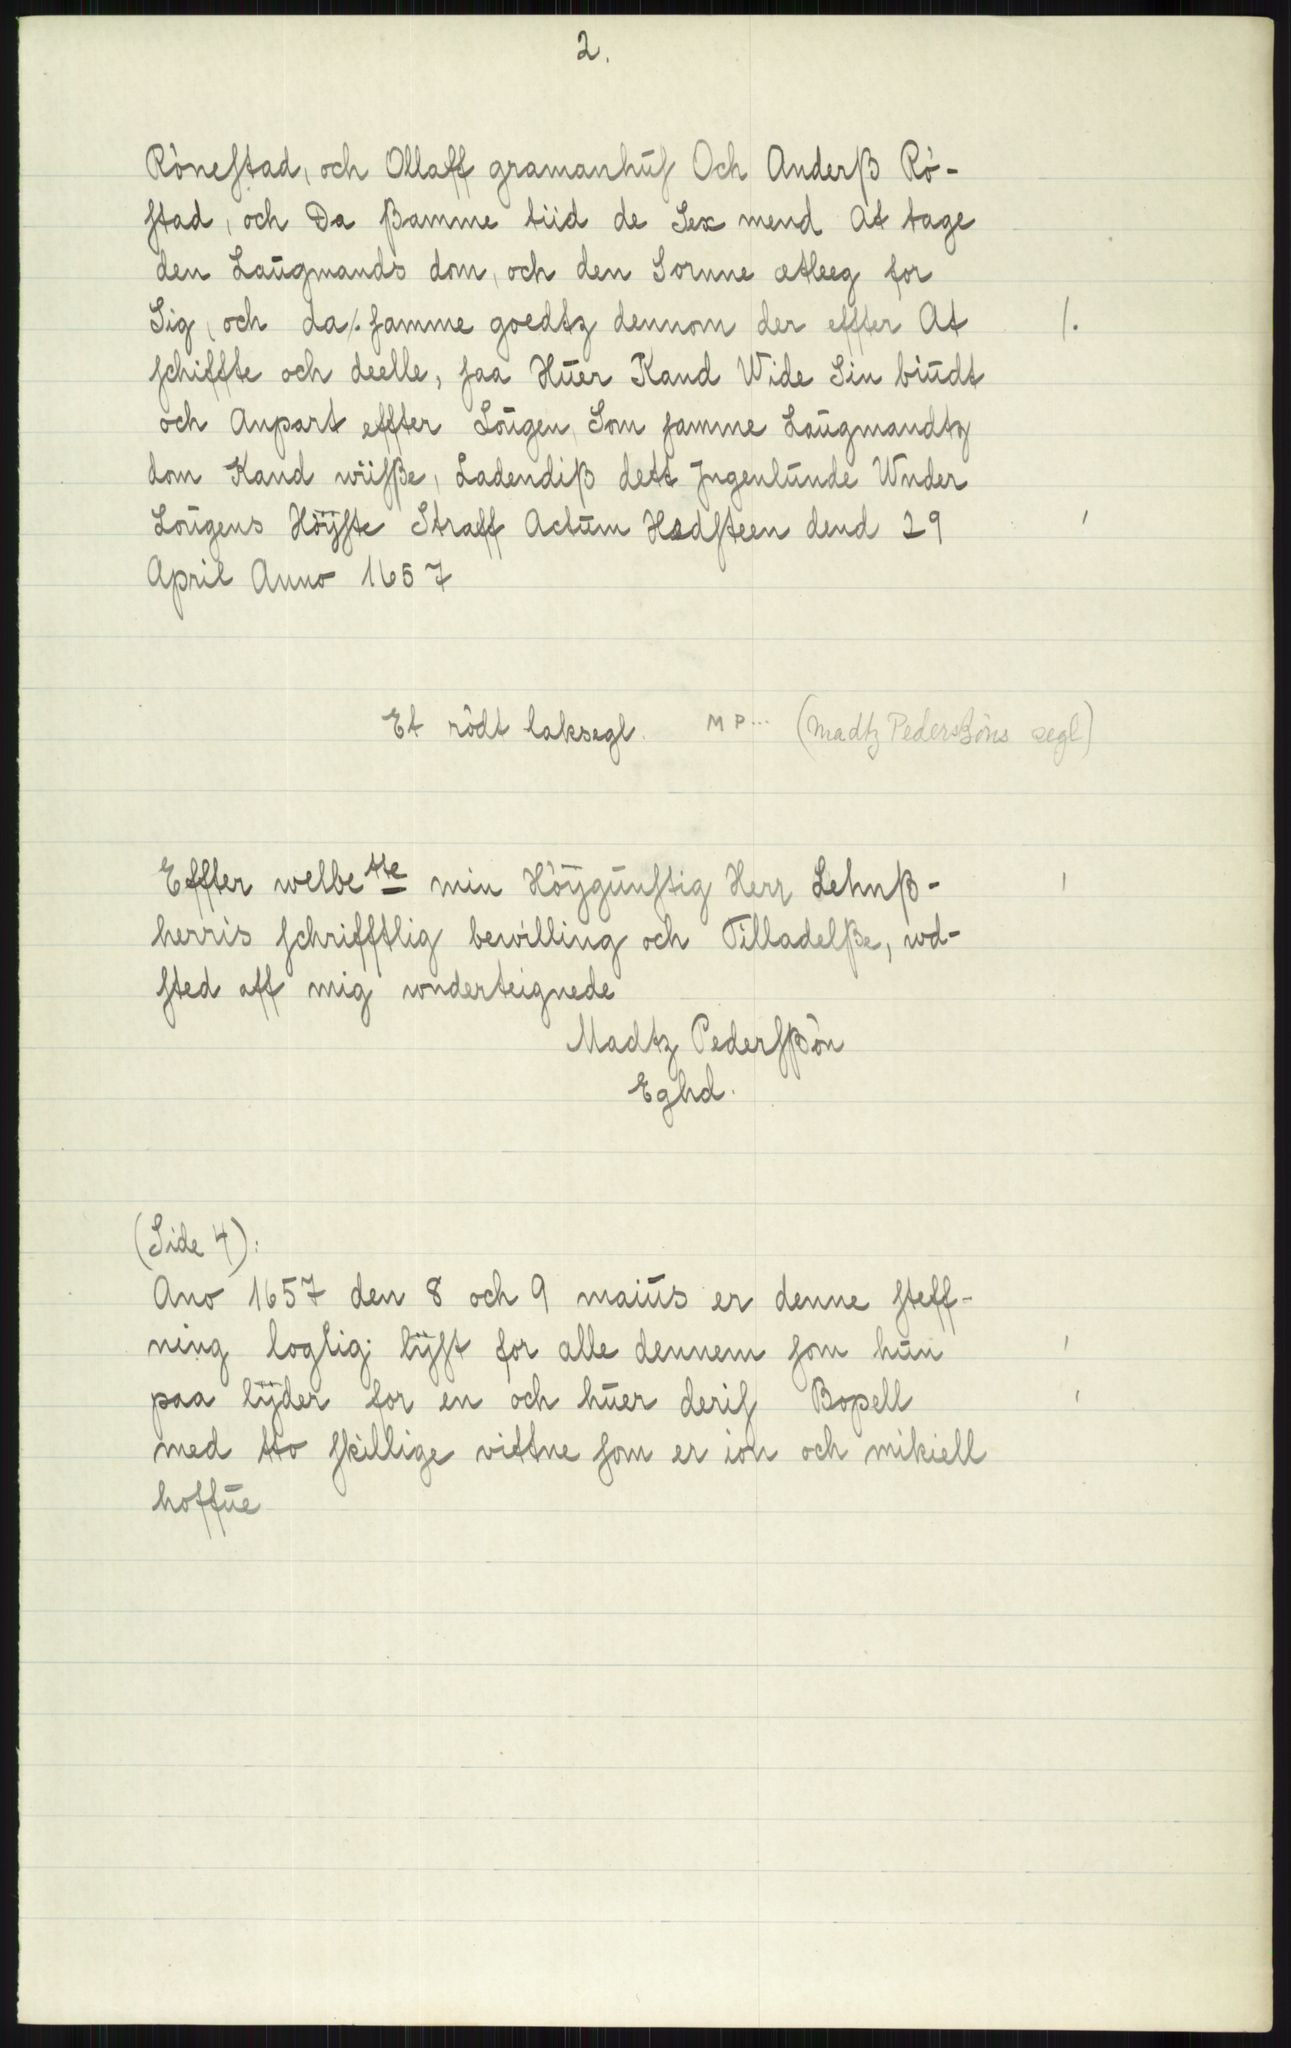 2.
Rönestad, och Ollaff gramanhus Och Anderß Rö-
stad, och Da ßamme tiid de Sex mend At tage
den Laugmands dom, och den Sornne ætleeg for
Sig, och da /. samme goedtz dennom der effter At /.
schiffte och deelle, saa Huer Kand Wide Sin biudt
och Anpart effter Lougen, Som samme Laugmandtz
dom Kand wiisße, Ladendiß dett Jngenlunde Wnder
Lougens Höÿste Straff Actum Hædsteen dend 29 '
April Anno 1657
Et rödt laksegl. M P... (Madtz Pedersßöns segl)
Effter welbe tte min Höÿgunstig Herr Lehnß- '
herris schrifftlig bewilling och Tilladelße, wd-
sted aff mig wnderteignede
Madtz Pedersßön
Eghd.
(Side 4):
Ano 1657 den 8 och 9 maius er denne steff-
ning loglig lÿst for alle dennem som hun '
paa lÿder for en och huer deris Bopell '
med tto skillige vittne som er ion och mikiell
hoffue